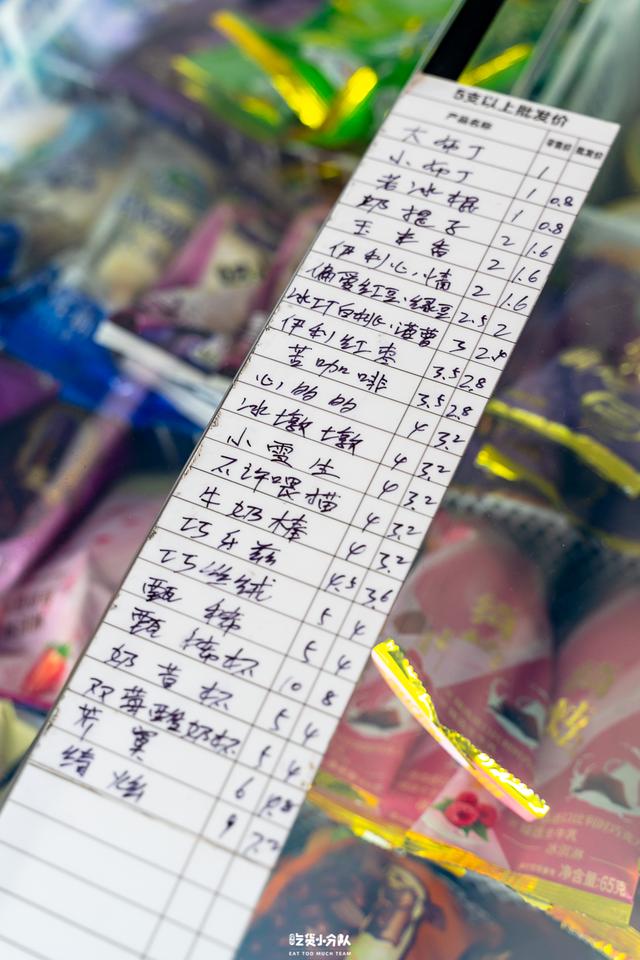 5支以上批发价
产品名称 零售价 批发价
大布丁 1 0.8
小布丁 1 0.8
老冰棍 1 0.8
奶提子 2 1.6
玉米香 2 1.6
伊利心情 2 1.6
偏爱红豆·绿豆 2.5 2
冰工厂白桃·海萌 3 2.4
伊利红枣 3.5 2.8
苦咖啡 3.5 2.8
心的的 4 3.2
冰墩墩 4 3.2
小雪生 4 3.2
不许喂猫 4 3.2
牛奶棒 4 3.2
巧乐兹 4.5 3.6
巧丝绒 5 4
甄稀 5 4
甄稀杯 10 8
奶昔杯 5 4
双莓酸奶杯 5 4
芥寞 6 4.8
绮炫 9 7.2
冰淇淋
净含量:65克
吃货小分队
EAT TOO MUCH TEAM